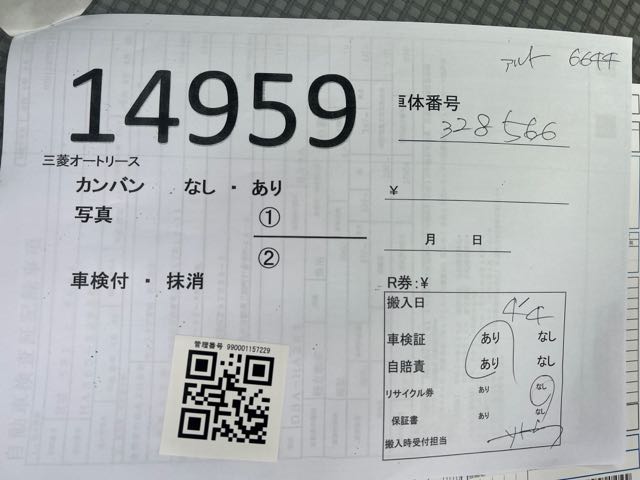 アルト 6644
14959
車体番号
328566
三菱オートリース
カンバン なし ・ あり
¥
写真 ①
月 日
②
車検付 ・ 抹消
R券:¥
搬入日 4/4
車検証 あり なし
自賠責 あり なし
リサイクル券 あり なし
保証書 あり なし
搬入時受付担当
管理番号 990001157229